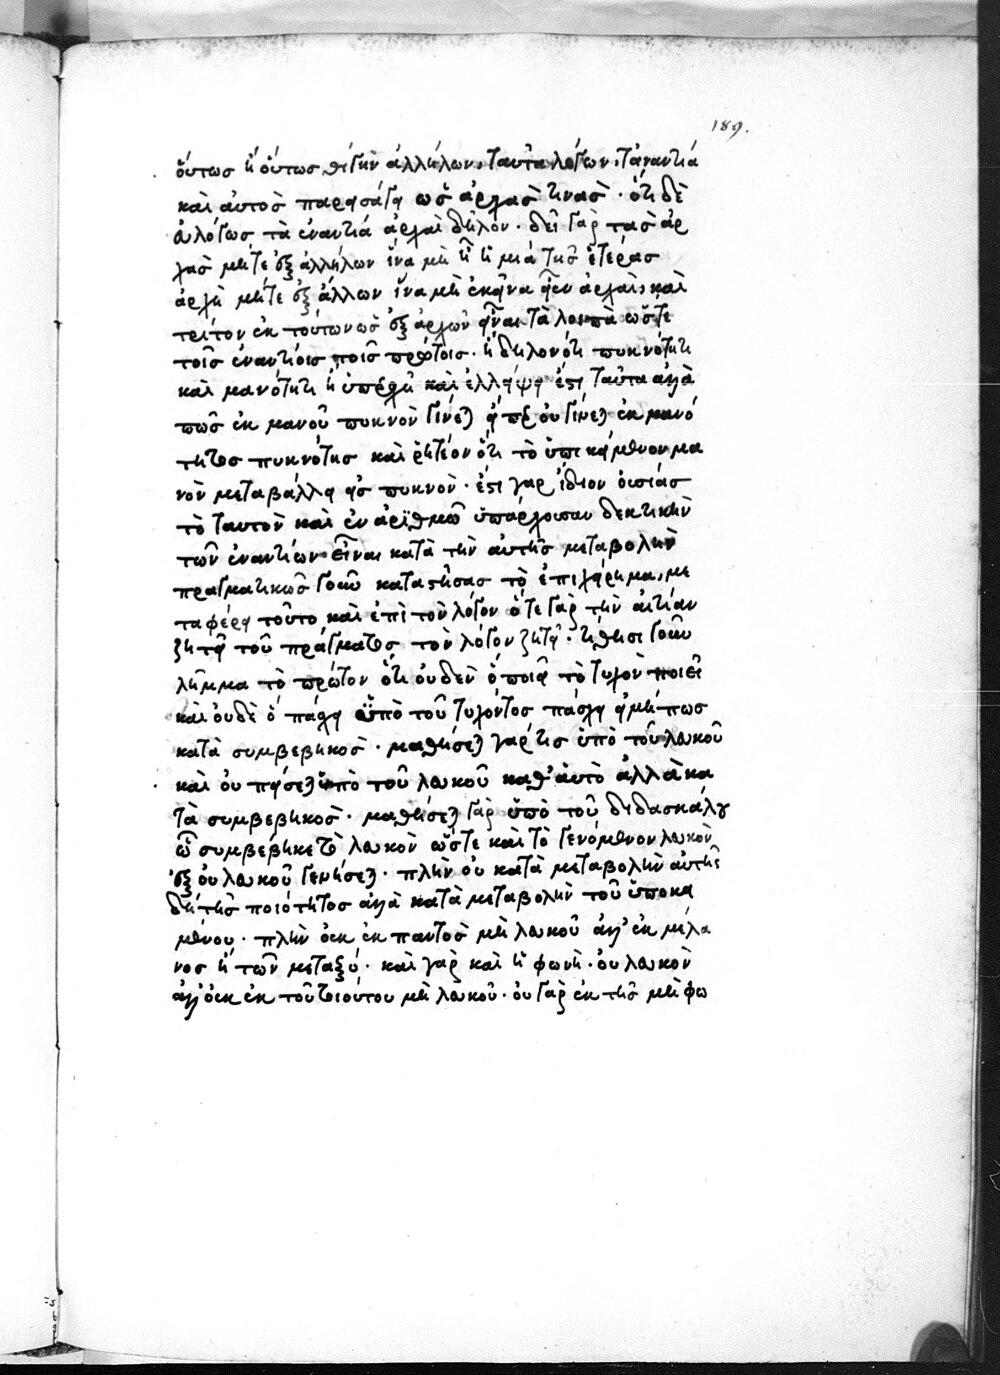 189.
οὕτως ἢ οὕτως θίξιν ἀλλήλων. ταῦτα λέγων. τἀναντιά
καὶ αὐτὸς παρεισάγει ὡς ἀρχὰς τινὰς. ὅτι δὲ
εὐλόγως τὰ ἐναντία ἀρχαὶ δῆλον. δεῖ γὰρ τὰς ἀρ
χὰς μήτε ἐξ ἀλλήλων ἵνα μὴ ἡ μιὰ τῆς ἑτέρας
ἀρχὴ μήτε ἐξ ἄλλων ἵνα μὴ ἐκεῖνα εἶεν ἀρχαὶ, καὶ
τρίτον ἐκ τούτων ὡς ἐξ ἀρχῶν εἶναι τὰ λοιπὰ ὥστε
τοῖς ἐναντίοις τοῖς πρώτοις. ἢ δηλονότι πυκνότητι
καὶ μανότητι ἢ ὑπεροχῆ καὶ ἐλλείψει ἐστι ταῦτα ἀλλὰ
πῶς ἐκ μανοῦ πυκνὸν γίνεται εἴπερ οὐ γίνεται ἐκ μανό
τητος πυκνότης καὶ ῥητέον ὅτι τὸ ὑποκείμενον μα
νὸν μεταβάλλει εἰς πυκνὸν. ἐστι γαρ ἴδιον οὐσίας
τὸ ταυτὸν καὶ ἓν ἀριθμῶ ὑπάρχουσαν δεκτικὴν
τῶν ἐναντίων εἶναι κατὰ τὴν αὐτῆς μεταβολὴν
πραγματικῶς γοῦν καταστήσας τὸ ἐπιχείρημα, με
ταφέρει τοῦτο καὶ ἐπὶ τὸν λόγον ὅτε γὰρ τὴν αἰτίαν
ζητεῖ τοῦ πράγματος τὸν λόγον ζητεῖ. τίθησι γοῦν
λῆμμα τὸ πρῶτον ὅτι οὐδὲν ὁποιεῖ τὸ τυχὸν ποιεῖ
καὶ οὐδὲ ὁ πάσχει ὑπὸ τοῦ τυχόντος πάσχει εἰ μήπως
κατὰ συμβεβηκὸς. μαθήσεται γαρ τις ὑπὸ τοῦ λευκοῦ
καὶ οὐ πείσεται ὑπὸ τοῦ λευκοῦ καθ' αὑτὸ ἀλλὰ κα
τὰ συμβεβηκὸς. μαθήσεται γὰρ ὑπὸ τοῦ διδασκάλου
ᾧ συμβέβηκε τὸ λευκὸν ὥστε καὶ τὸ γενόμενον λευκὸν
ἐξ οὐ λευκοῦ γενήσεται. πλὴν οὐ κατὰ μεταβολὴν αὐτῆς
δὴ τῆς ποιότητος ἀλλὰ κατὰ μεταβολὴν τοῦ ὑποκει
μένου. πλὴν οὐκ ἐκ παντὸς μὴ λευκοῦ ἀλλ' ἐκ μέλα
νος ἢ τῶν μεταξύ. καὶ γὰρ καὶ ἡ φωνὴ. οὐ λευκὸν
ἀλλ' οὐκ ἐκ τοῦ τοιούτου μὴ λευκοῦ. οὐ γὰρ ἐκ τῆς μὴ φω